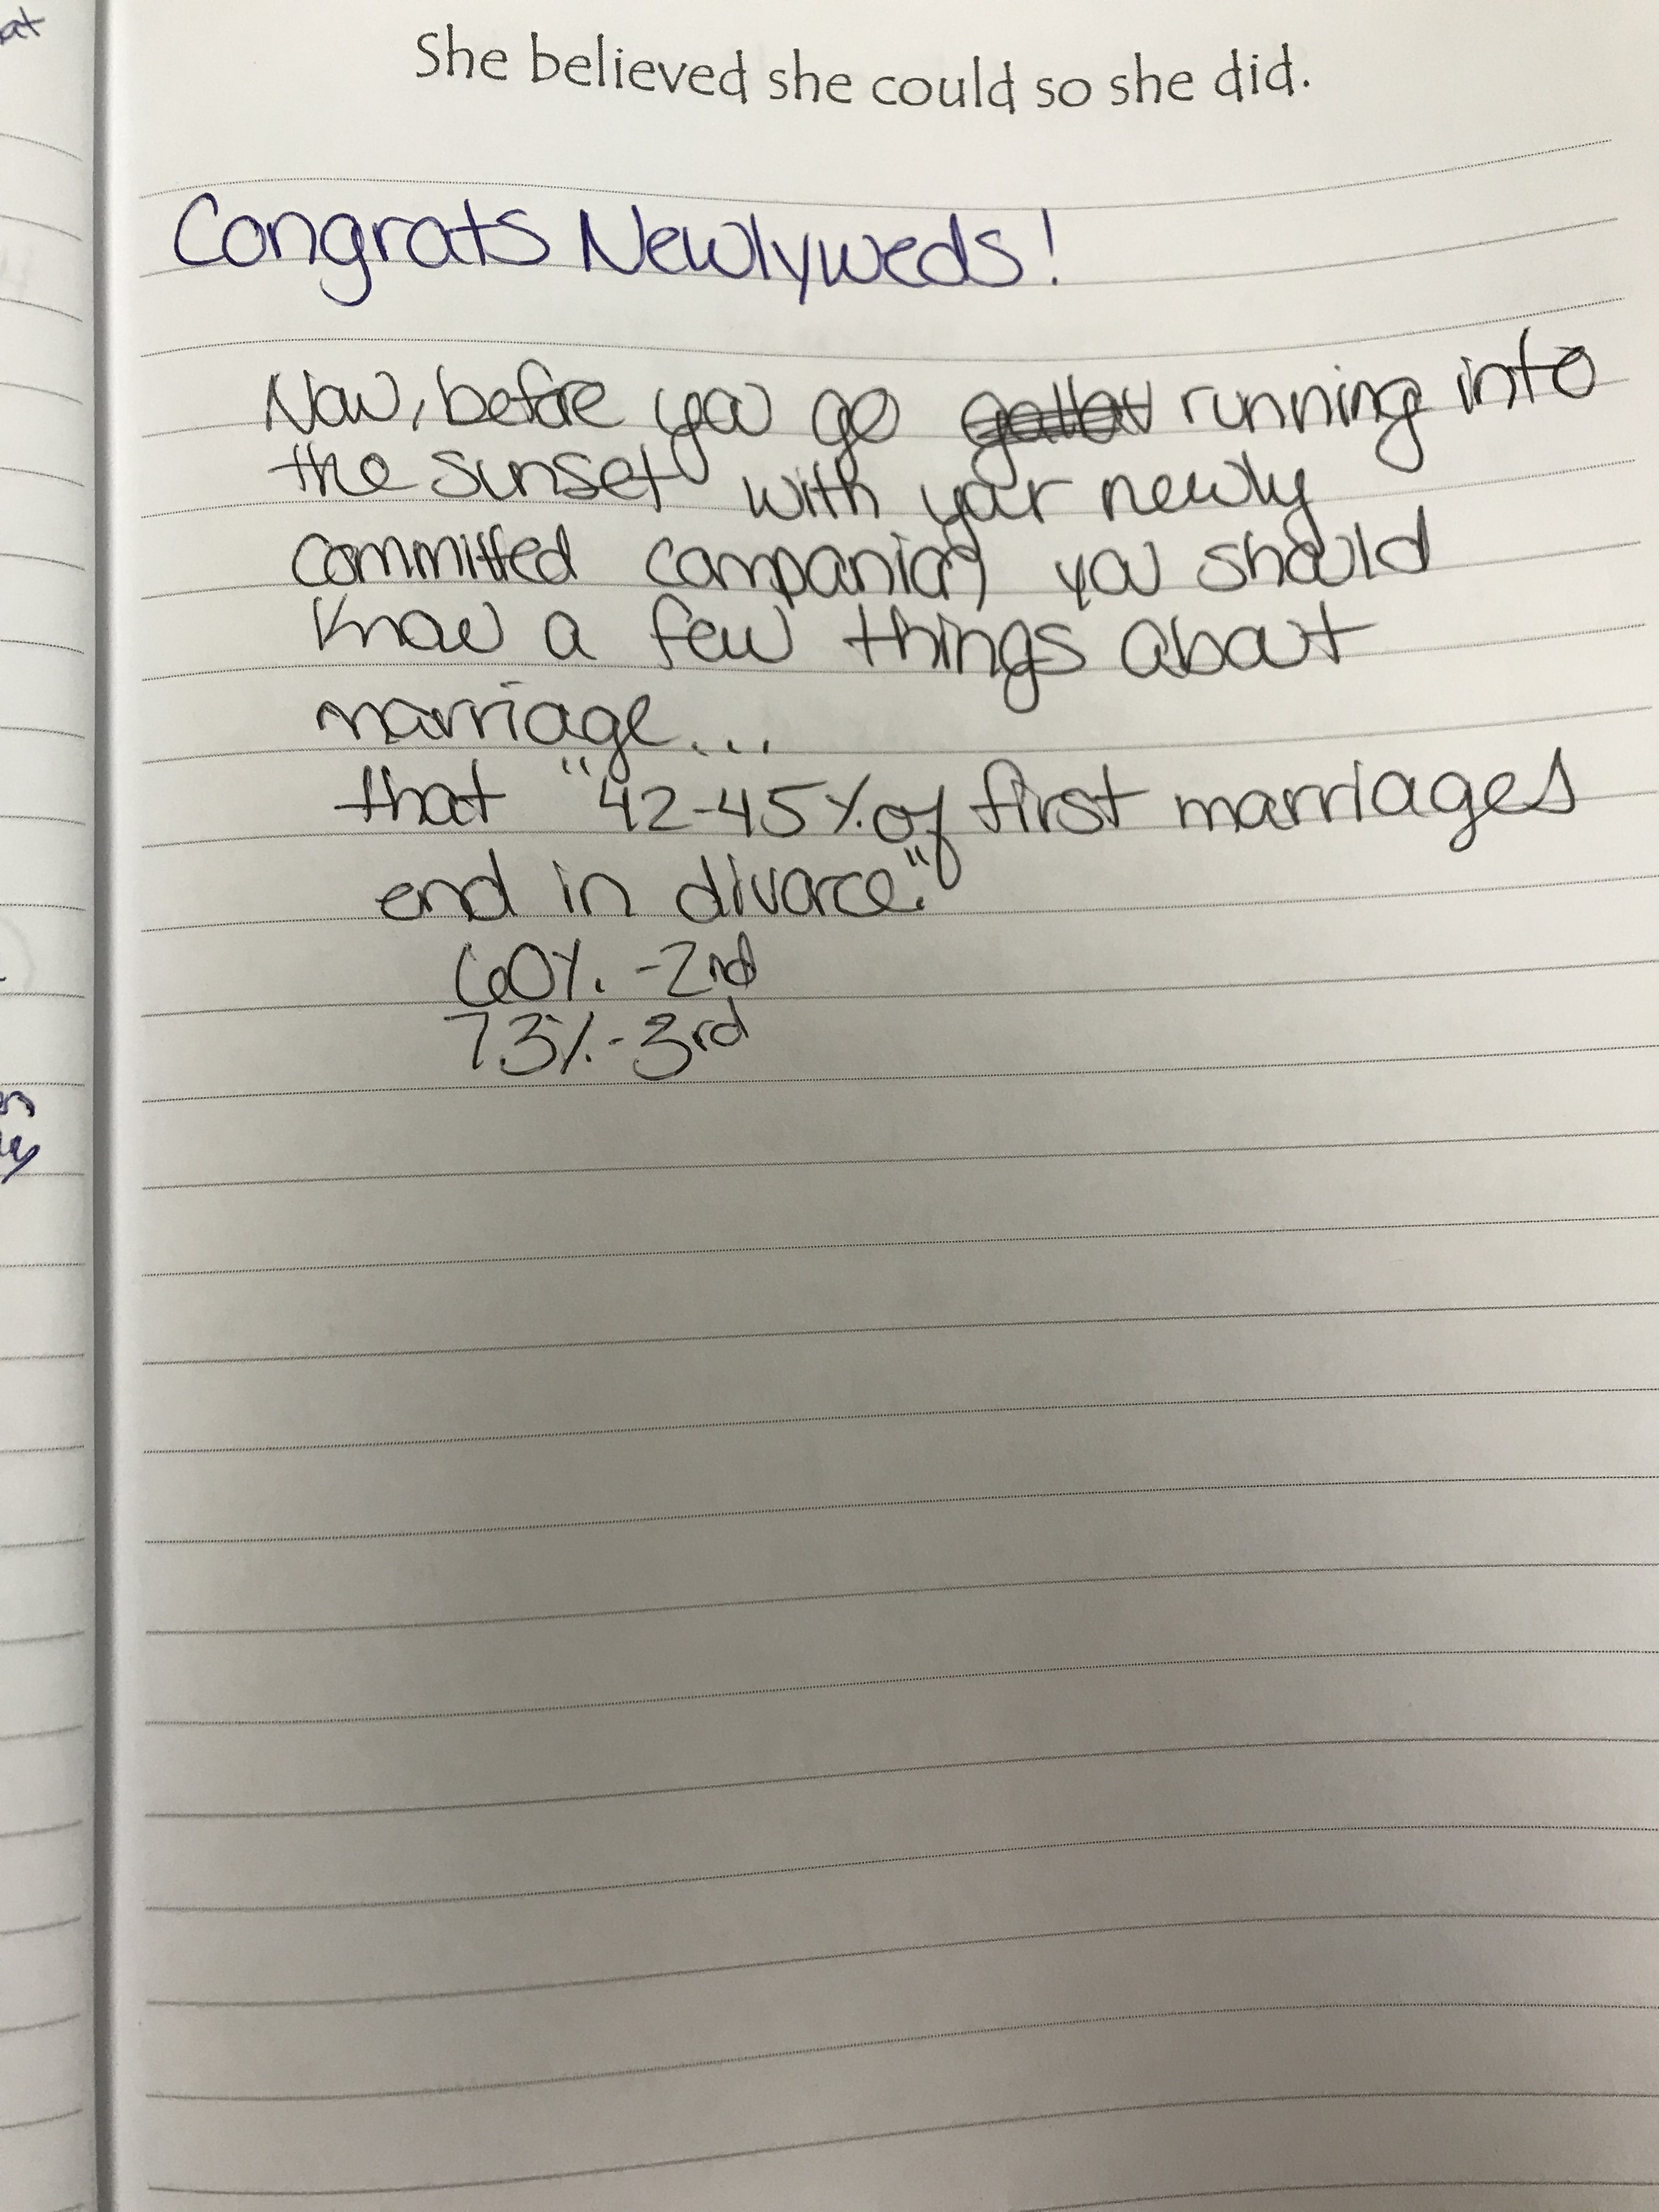 at
She believed she could so she did.
Congrats Newlyweds!
Now, before you go running into
the sunset with your newly
committed companion, you should
know a few things about
marriage...
that "42-45% of first marriages
end in divorce."
60%. -2nd
73%.-3rd